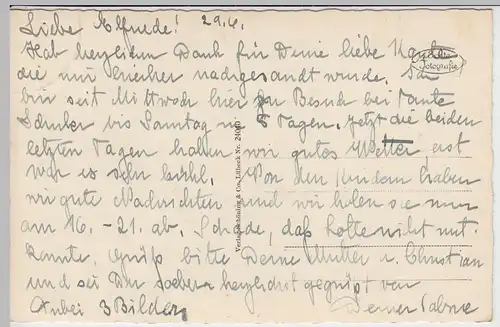 Liebe Elfriede! 29.6.
Hab herzlichen Dank für Deine liebe Karte,
die mir hierher nachgesandt wurde. Ich
bin seit Mittwoch hier zu Besuch bei Tante
bis Sonntag in 8 Tagen. Jetzt die beiden
letzten Tagen haben wir gutes Wetter, erst
war es sehr kühl. Von den Kindern haben
wir gute Nachrichten und wir holen sie nun
am 16. - 21. ab. Schade, daß nicht mit
konnte. Grüß bitte Deine Mutter u. Christian
und sei Du herzlichst gegrüßt von
Anbei 3 Bilder Deiner
Fotografie
Verlag Schöning & Co., Lübeck Nr.